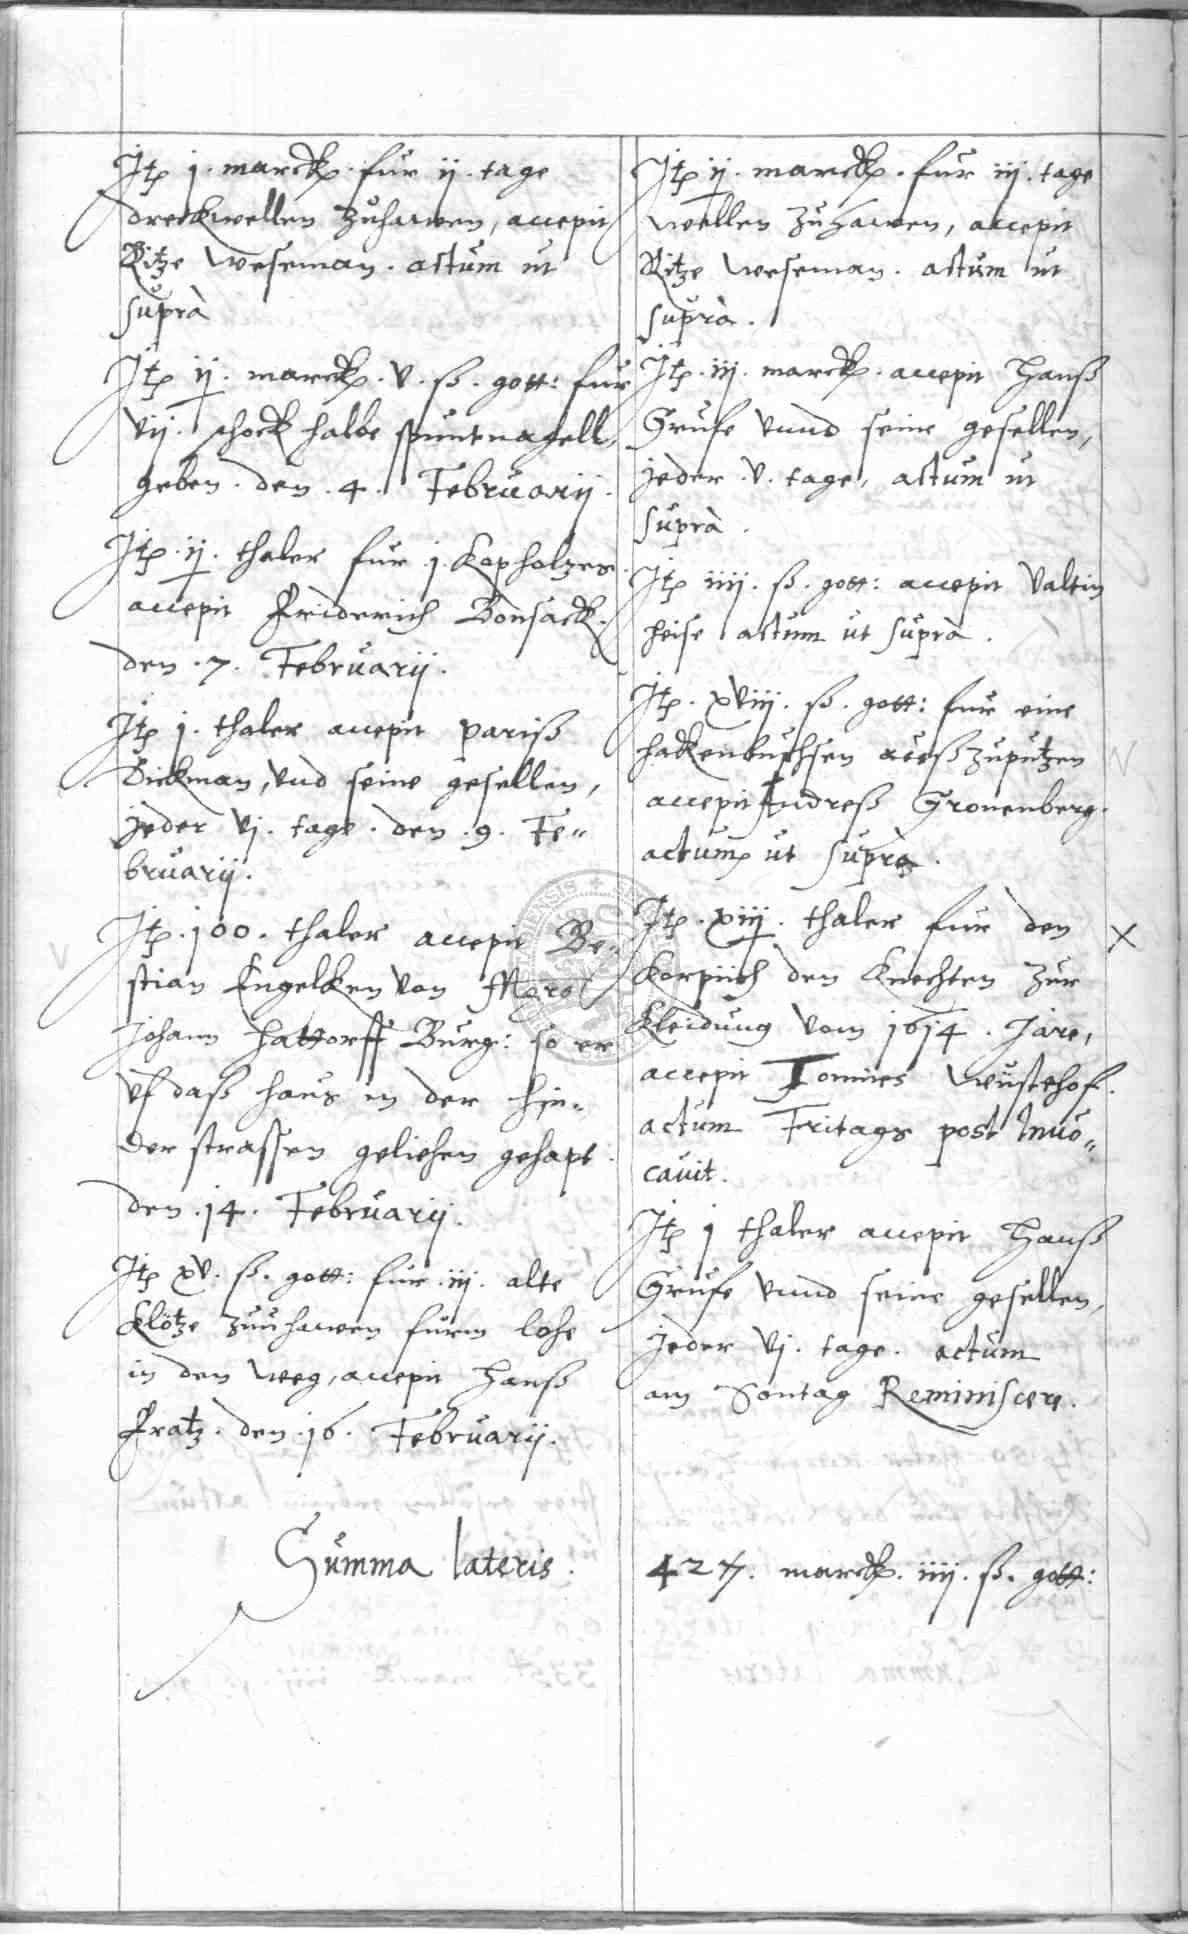 Itp j. marck. fur ij. tage
dreckwellen zuhawen, accepit
Ritze Weseman. actum ut
suprà
Itp ij. marck. v. ß. gott: fur
vij. schock halbe spuntnagell,
geben. den. 4. Februarij.
Itp. ij. thaler fur .j. Kopholtzes
accepit Friderich Bonsack.
den .7. Februarij.
Itp j. thaler accepit Pariß
Dickman, vnd seine gesellen,
jeder vj. tage. den .9. Fe„
bruarij.
Itp. 100. thaler accepit Be„
stian Engelken von
Johann Hattorff Burg: so er
vf daß haus in der Hin„
der strassen geliehen gehapt.
den .14. Februarij.
Itp xv. ß. gott: fur .iij. alte
Klötze zuuhawen furm lohe
in den weg, accepit Hanß
Fratz. den .16. Februarij.
Itp ij. marck. fur iij. tage
wellen zuhawen, accepit
Ritze Weseman. actum ut
suprà.
Itp. iij. marck. accepit Hanß
Grufe vnnd seine gesellen,
jeder .v. tage, actum ut
suprà.
Itp iiij. ß. gott: accepit Valtin
Heise actum ut suprà.
Itp. xviij. ß. gott: fur eine
hackenbuchsen außzuputzen
accepit Andreß Gronenberg.
actum ut suprà.
Itp. xiij. thaler fur den
den Knechten zur
Kleidung vom 1614. Jare,
accepit Tonnies Wustehof.
actum Fritags post Inuo„
cauit.
Itp j thaler accepit Hanß
Grufe vnnd seine gesellen,
jeder vj. tage. actum
am Sontag Reminiscere.
Summa lateris.
427. marck. iiij. ß. gott: